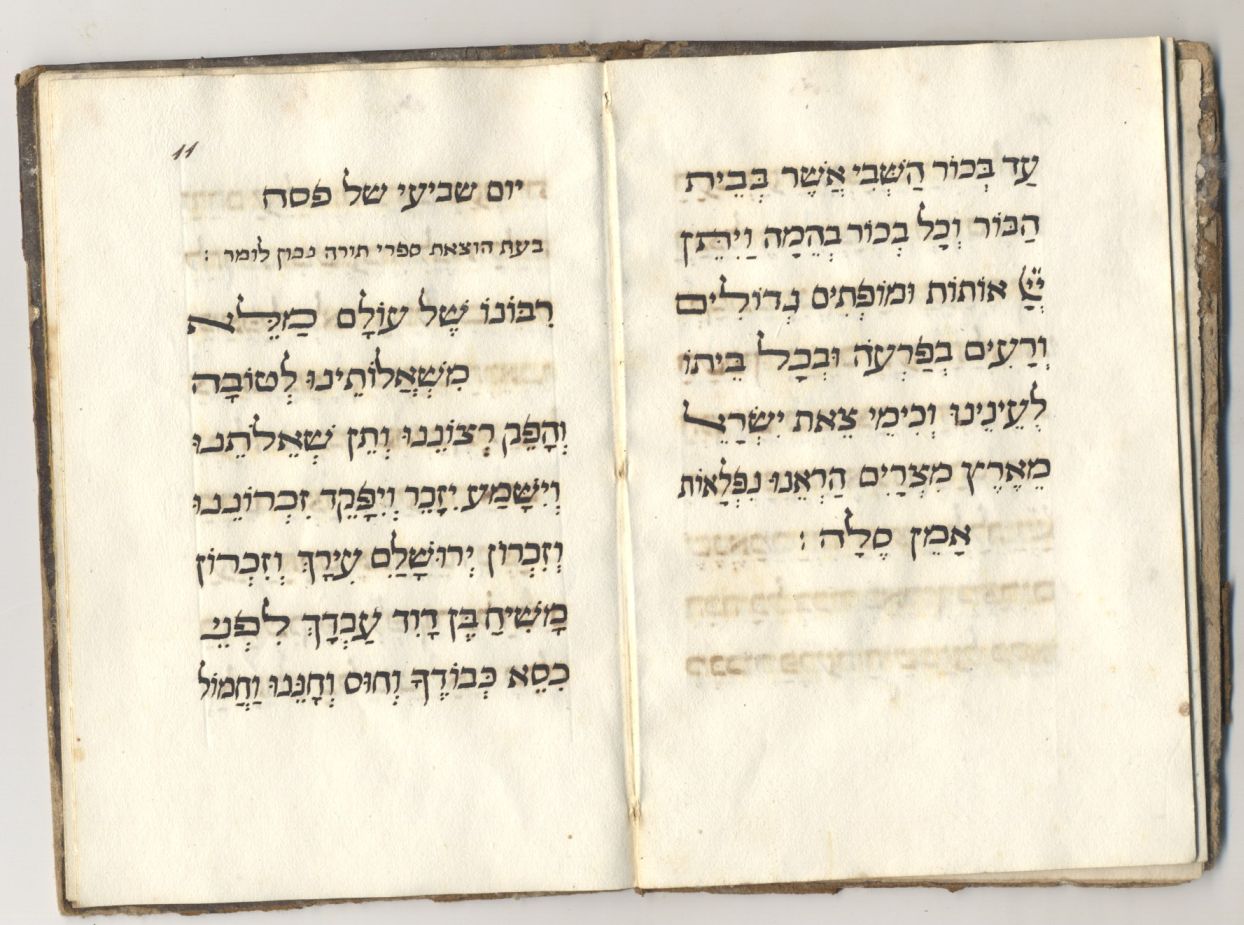 עַד בְּכוֹר הַשְּׁבִי אֲשֶׁר בְּבֵית
הַבּוֹר וְכָל בְּכוֹר בְּהֵמָה וַיִּתֵּן
אוֹתוֹת וּמוֹפְתִים גְּדוֹלִים
וְרָעִים בְּפַרְעֹה וּבְכָל בֵּיתוֹ
לְעֵינֵינוּ וְכִימֵי צֵאת יִשְׂרָאֵל
מֵאֶרֶץ מִצְרַיִם הַרְאֵנוּ נִפְלָאוֹת
אָמֵן סֶלָה :
11
יום שביעי של פסח
בעת הוצאת ספרי תורה נכון לומר :
רִבּוֹנוֹ שֶׁל עוֹלָם מַלֵּא
מִשְׁאֲלוֹתֵינוּ לְטוֹבָה
וְהָפֵק רְצוֹנֵנוּ וְתֵן שְׁאֵלֹתֵנוּ
וְיִשָּׁמַע יִזָּכֵר וְיִפָּקֵד זִכְרוֹנֵנוּ
וְזִכְרוֹן יְרוּשָׁלַםִ עִירָךְ וְזִכְרוֹן
מָשִׁיחַ בֶּן דָּוִד עַבְדָּךְ לִפְנֵי
כִסֵּא כְּבוֹדֶךָ וְחוּס וְחָנֵּנוּ וַחֲמוֹל